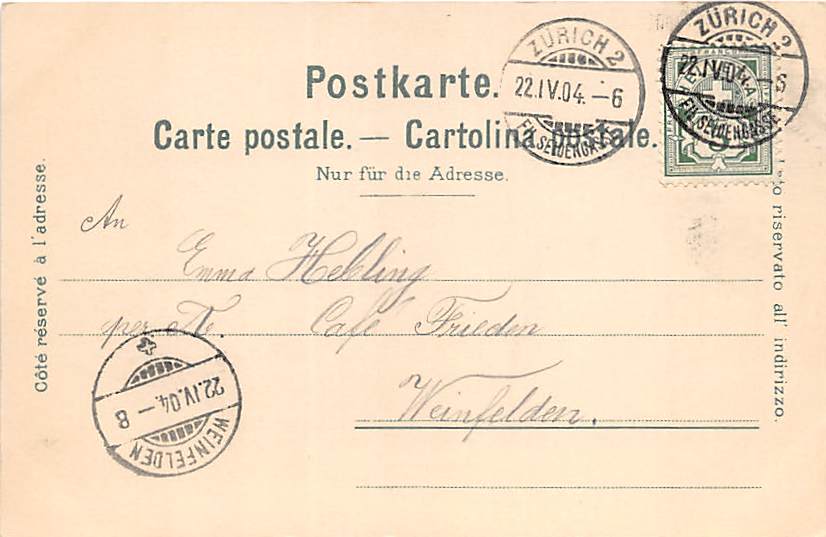 ZÜRICH 2
22.IV.04.-6
FIL.SEIDENGASSE
ZÜRICH 2
22.IV.04.-6
FIL.SEIDENGASSE
Postkarte.
Carte postale. — Cartolina postale.
Nur für die Adresse.
Côté réservé à l'adresse.
riservato all' indirizzo.
An
Emma Hebling
per Adr. Café Frieden
Weinfelden.
22.IV.04.-8
WEINFELDEN